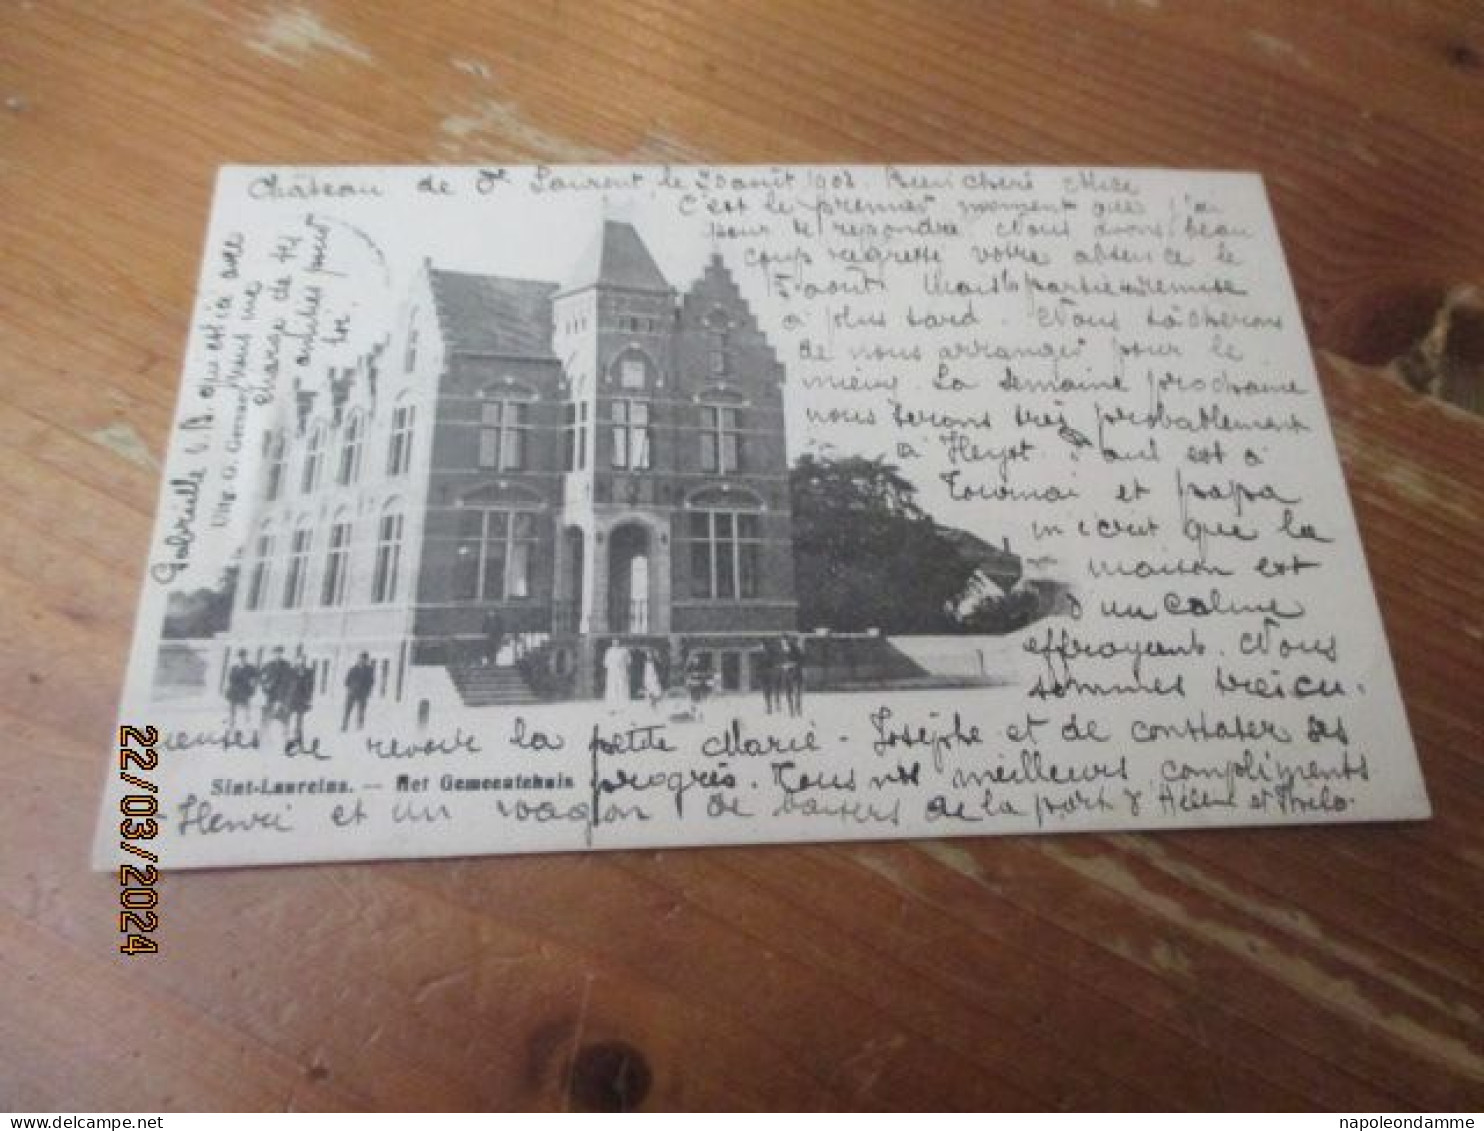 Château de St Laurent, le 20 août 1902. Bien chère Alice
C'est le premier moment que j'ai
pour te repondre Nous avons beau
coup regretté votre absence le
5 août. Mais partie remise
à plus tard. Nous tâcherons
de nous arranger pour le
mieux La semaine prochaine
nous serons très probablement
à Heyst. Paul est à
Tournai et papa
m'écrit que la
maison est
d'un calme
effrayant. Nous
sommes
reuses de revoir la petite Marie-Josèphe et de constater ses
progrès. Tous nos meilleurs compliments
Henri et un wagon de baisers de la part d'Hélène et
Sint-Laureins. — Het Gemeentehuis
Gabrielle V.B. qui est ici
me charge de
amitiés pour
toi.
Uitg. O.
22/03/2024
napoleondamme